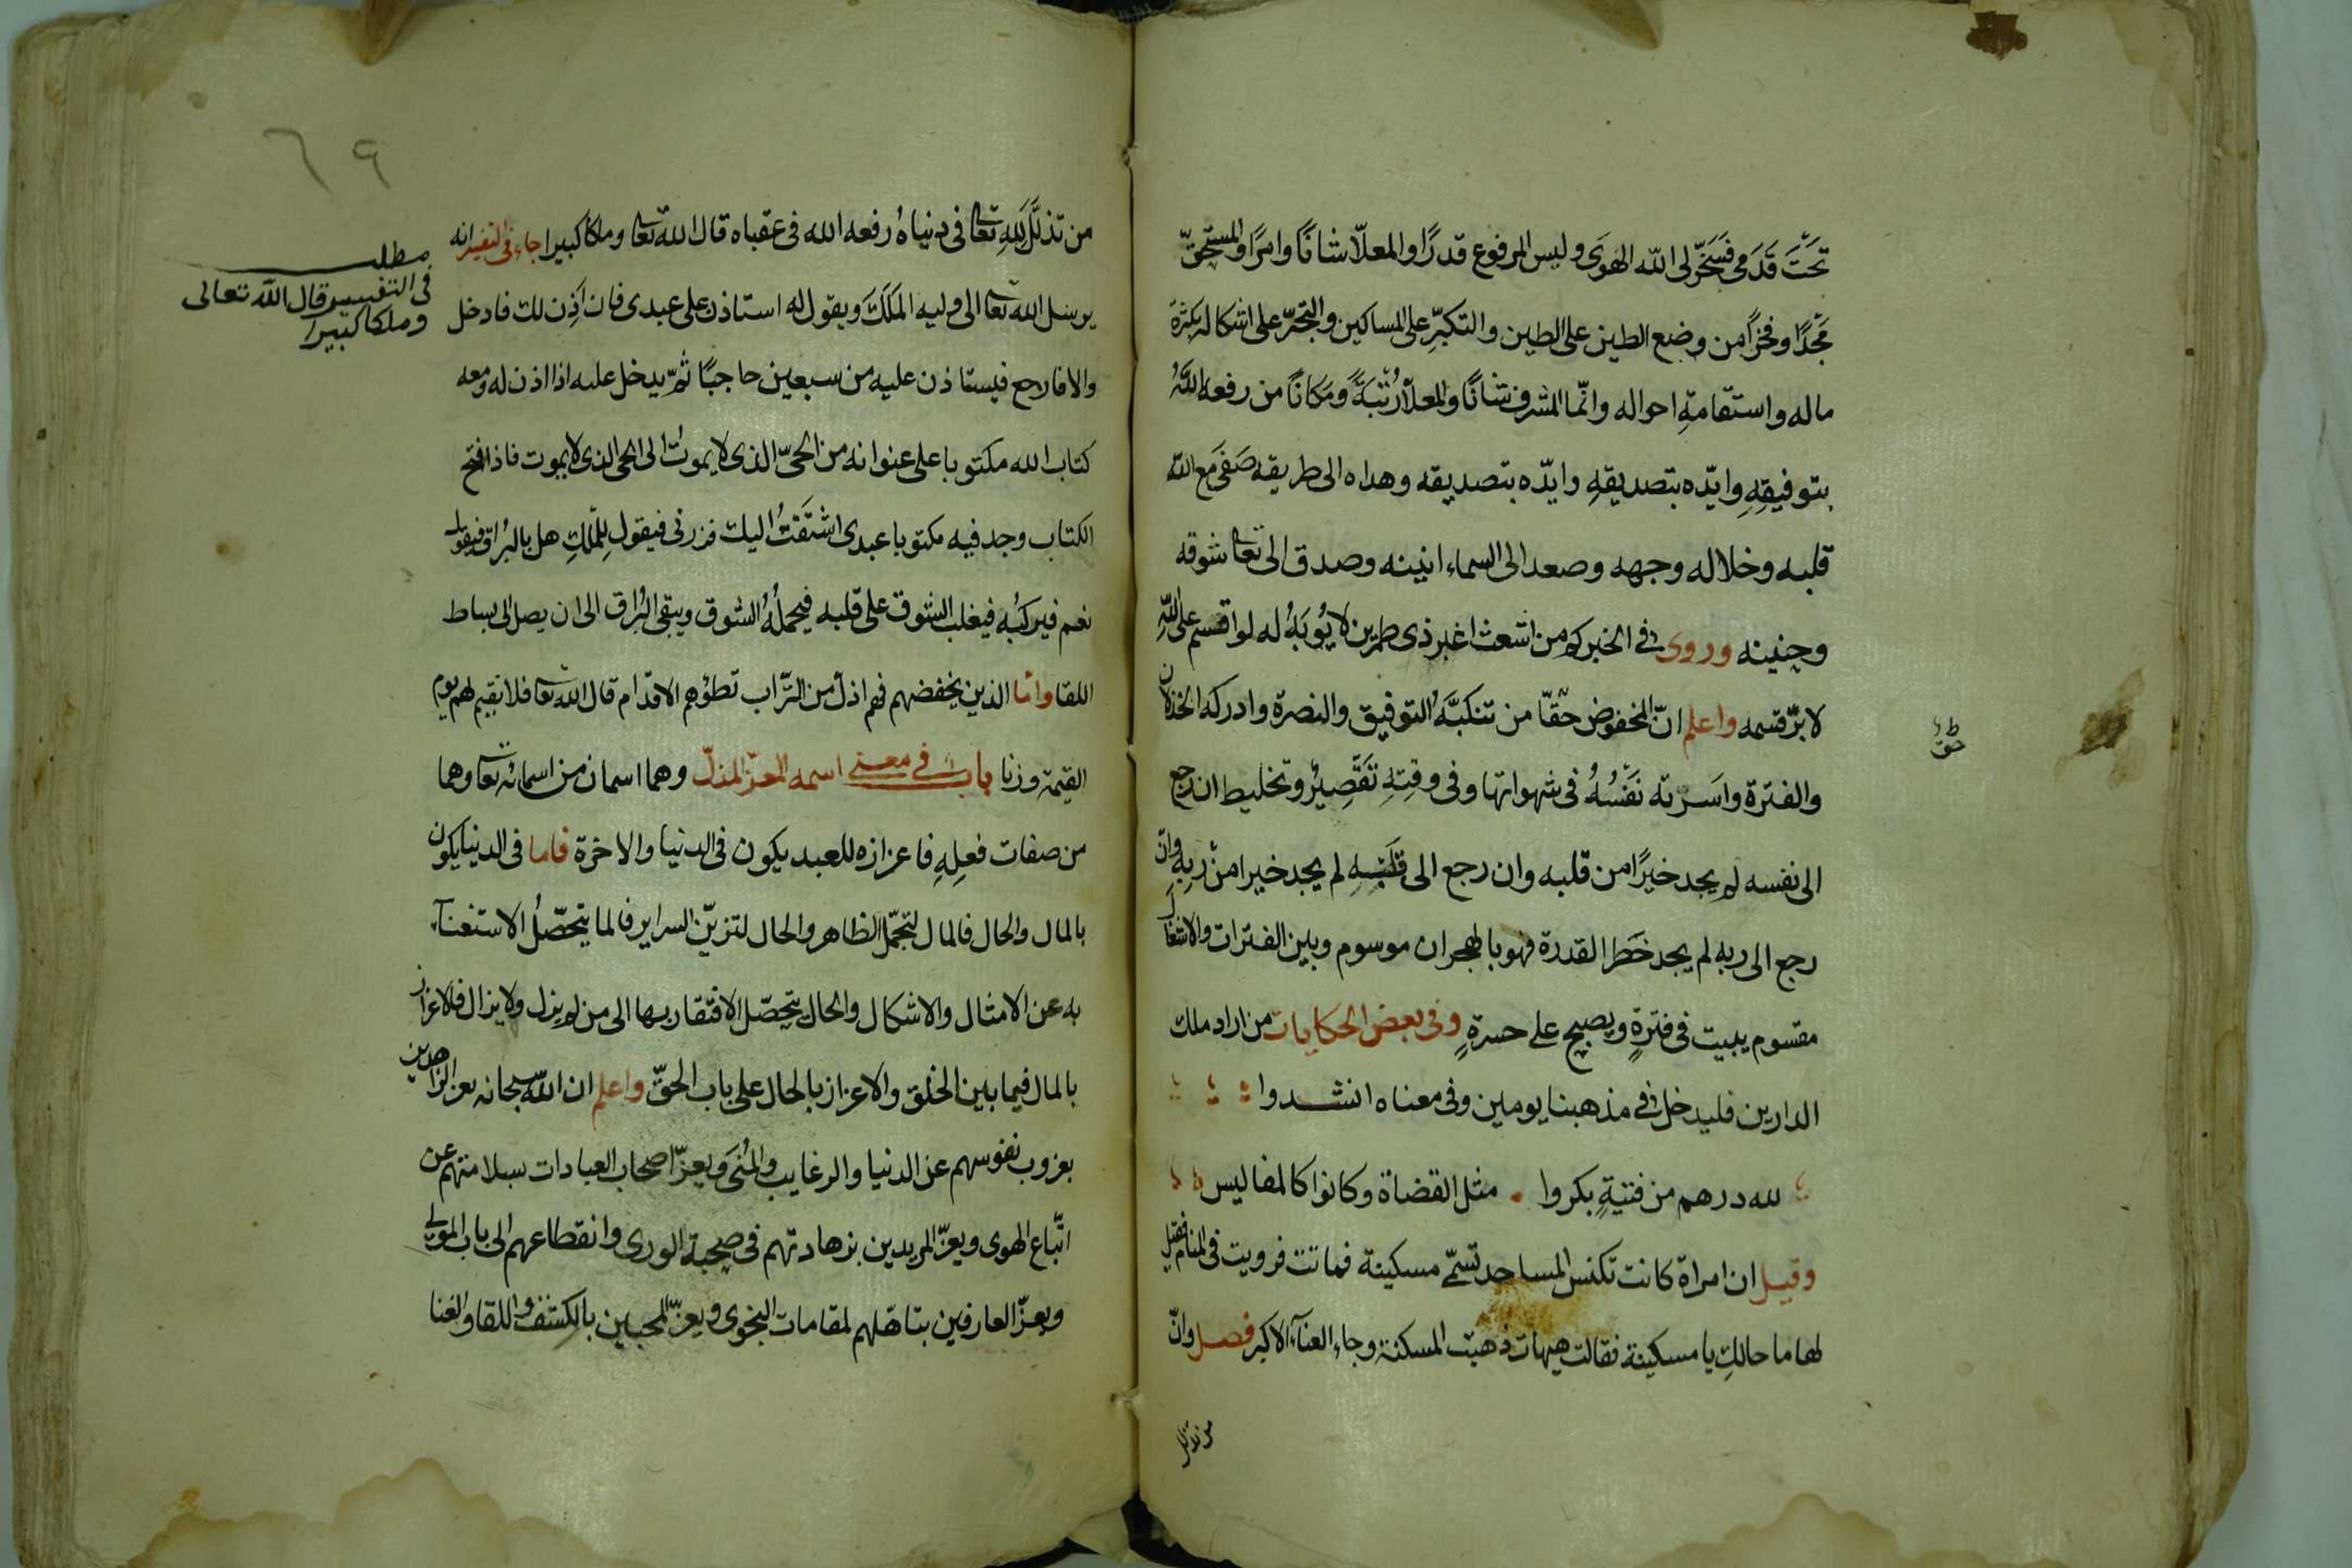 تَحْتَ قَدَمي فَسَخَّر لى الله الهوَى وليس المرفوع قدرًا والمعلّا شانًا وامرًا والمستحقّ
مَجْدًا وفخرًا من وضع الطين على الطين والتكبّرِ على المساكين والتجبّر على اشكاله بكثرة
ماله واستقامةِ احواله وانّما المشرف شانًا والمعلّا رُتْبَةً ومَكانًا من رفعه اللهُ
بتوفيقِهِ وايّده بتصديقهِ وايّده بتصديقه وهداه الى طريقه صَفَى مَع الله
قلبه وخلا له وجهه وصعد الى السماء انينه وصدق الى تعالى شوقه
وحنينه وروى فى الخبر كم من اشعث اغبر ذى طمرين لا يُوبَهُ له لو اقسم على اللهِ
لابرّ قسمه واعلم انّ المخفوض حقّا من تنكبَّهُ التوفيق والنصرة وادركه الخذلان
والفترة واسَرته نَفْسُهُ فى شهواتها وفى وقتِهِ تَقْصِيرٌ وتخليط ان رجع
الى نفسه لم يجد خيرًا من قلبه وان رجع الى قَلْبِهِ لم يجد خيرا من ربِهِ وانْ
رجع الى ربه لم يجد خَطَر القدرة فهو بالهجران موسوم وبين الفترات والانتقال
مقسوم يبيت فى فترةٍ ويصبح على حسرةٍ وفى بعض الحكايات من اراد ملك
الدارين فليدخل فى مذهبنا يومين وفى معناه انشدوا
لله درهم من فتيةٍ بكروا . مثل القضاة وكانوا كالمفاليس
وقيل ان امراة كانت تكنس المساجد تسمّى مسكينة فماتت فرويت فى المنام فقيل
لها ما حالكِ يا مسكينة فقالت هيهات ذهبت المسكنة وجاء الغنآء الاكبر فصل وانّ
من تذلل
من تذلَّل للهِ تعالى فى دنياهُ رفعه الله فى عقباه قال الله تعالى وملكا كبيرا جاء فى التفسير انه
يرسل الله تعالى الى وليه المَلَكَ ويقول له استاذن على عبدى فان اَذِن لك فادخل
والا فارجع فيستاذن عليه من سبعين حاجبًا ثمّ يدخل عليه اذا اذن له ومعه
كتاب الله مكتوبا على عنوانه من الحىّ الذى لا يموت الى الحى الذى لا يموت فاذا فتح
الكتاب وجد فيه مكتوبا عبدى اشتَقْتُ اليك فزرنى فيقول للْمَلَكِ هل بالبُراق فيقول
نعم فيركبُه فيغلب الشوق على قلبه فيحملُهُ الشوق ويبقى البُراق الى ان يصل الى بساط
اللقا وامّا الذين يخفضهم فهم اذلّ من التّراب تطؤهم الاقدام قال الله تعالى فلا نقيم لهم يوم
القيمة وزنا باب فى معنى اسمه المعزّ المذلّ وهما اسمان من اسمائه تعالى وهما
من صفات فعلِهِ فاعزازه للعبد يكون فى الدنيا والاخرة فاما فى الدنيا يكون
بالمال والحال فالمال لتجمّل الظاهر والحال لتزيّن السراير فالما يتحصّلُ الاستغنآء
به عن الامثال والاشكال والحال يتحصّل الافتقار بها الى من لم يزل ولا يزال فالاعزاز
بالمال فيما بين الخلق والاعزاز بالحال على باب الحقّ واعلم ان اللّه سبحانه يعز الزاهدين
بعزوب نفوسهم عن الدنيا والرغايب والمُنَى ويعزّ اصحاب العبادات بسلامتهم عن
اتّباع الهوى ويعزّ المريدين بزهادتهم فى صحبة الورى وانقطاعهم الى باب المولى
ويعزّ العارفين بتاهلهم لمقامات النجوى ويعزّ المحبين بالكشف واللقا والغنا
مطلب
فى التفسير قال الله تعالى
وملكا كبيرا
٦٩